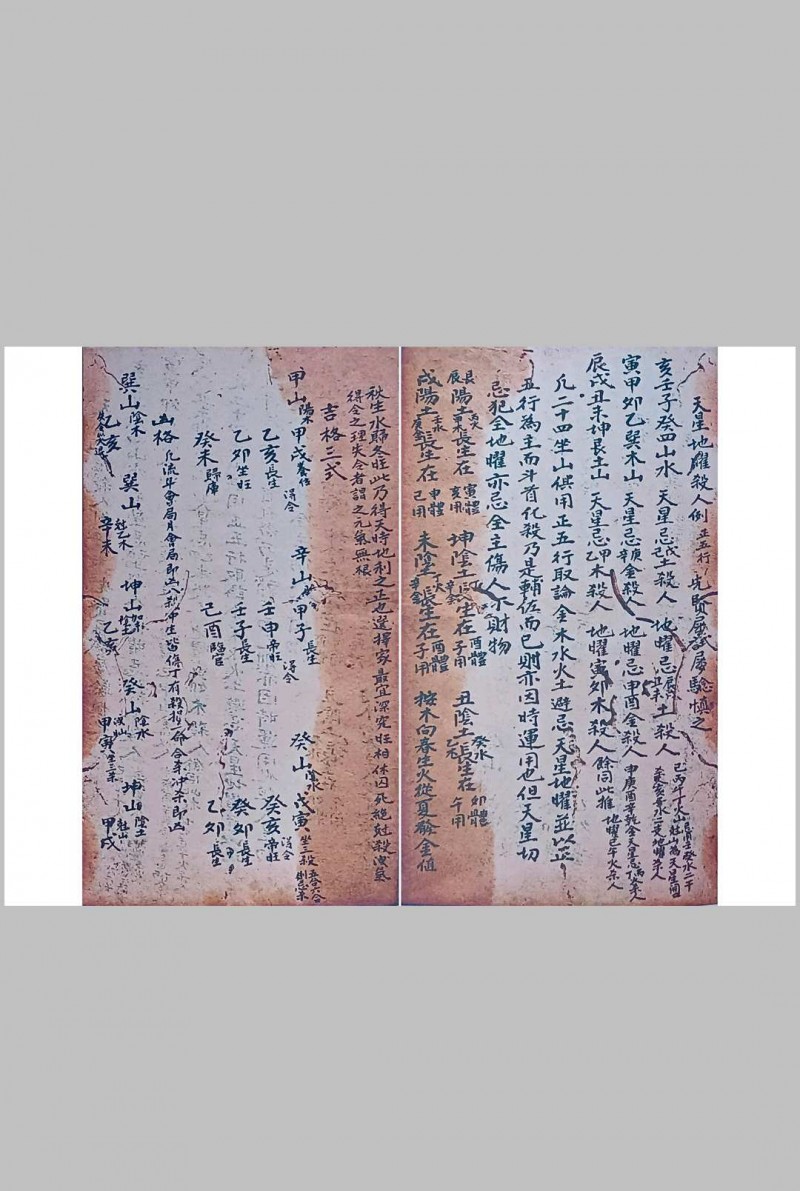 天星地曜殺人例 正五行 先賢屢試屢驗慎之
亥壬子癸四山水 天星忌戊己土殺人 地曜忌辰土殺人
寅甲卯乙巽木山 天星忌庚辛金殺人 地曜忌申酉金殺人
辰戌丑未坤艮土山 天星忌甲乙木殺人 地曜寅卯木殺人 餘同此推
凡二十四坐山俱用正五行取論金木水火土避忌天星地曜並以正
五行為主而斗首化殺乃是輔伍而已則亦因時運用也但天星切
忌犯全地曜亦忌全主傷人不財物
艮辰陽土長生在寅體亥用 坤陰土長生在酉體子用 丑陰土長生在卯體午用
戌陽土長生在申體己用 未陰土長生在酉體子用 按木向春生火從夏發金值
秋生水歸冬旺此乃得天時地利之正也選擇家最宜深究旺相休囚死絕尅殺洩墓
得令之理失令者謂之元氣無根
吉格三式
甲山陽木 甲戌養位 辛山 甲子長生 癸山陰水 戊寅 坐三殺
乙亥長生 得令 壬申帝旺 得令 癸亥帝旺 得令
乙卯坐旺 壬子長生 癸卯長生
癸未歸庫 己酉臨官 乙卯長生
凶格 凡流年會局月會局即凶八剎冲生皆傷丁有殺招命合羊冲杀即凶
巽山陰木 巽山 坤山 癸山陰水 坤山陰土
乙亥 辛未 乙亥 甲寅 甲戌